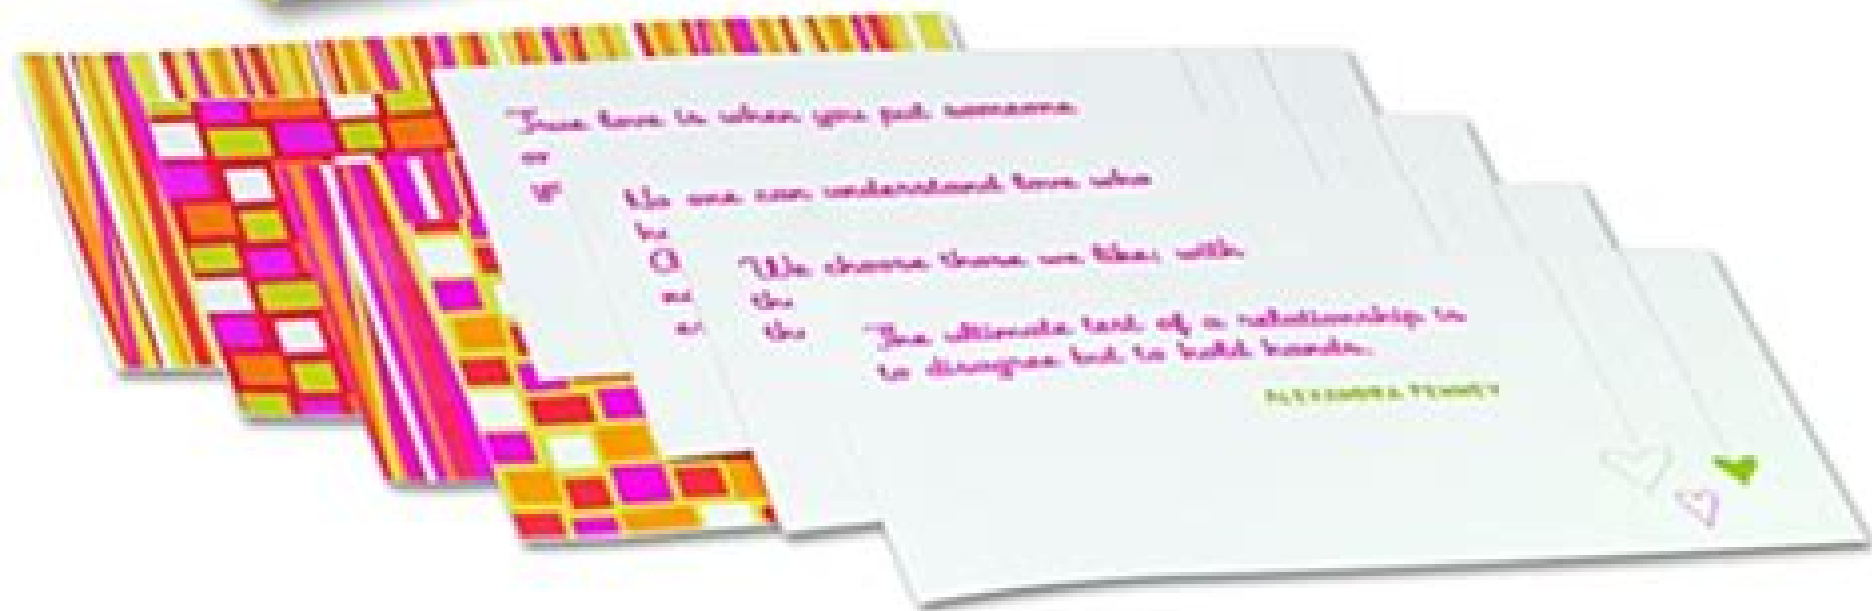 True love is when you put someone
or
yo
No one can understand love who
ha
O
no
ex
We choose those we like; with
tho
tho
The ultimate test of a relationship is
to disagree but to hold hands.
ALEXANDRA PENNEY